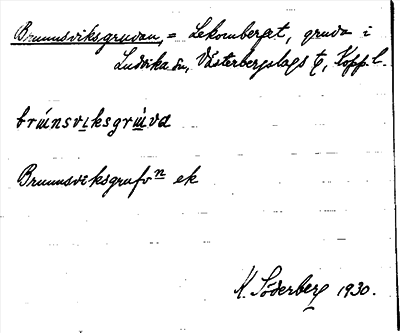 Brunnsviksgruvan, = Lekomberget, gruva i
Ludvika sn, Västerbergslags t, Kopp. l.
brúnsviksgrùva
Brunnsviksgrufvn ek
K. Söderberg 1930.